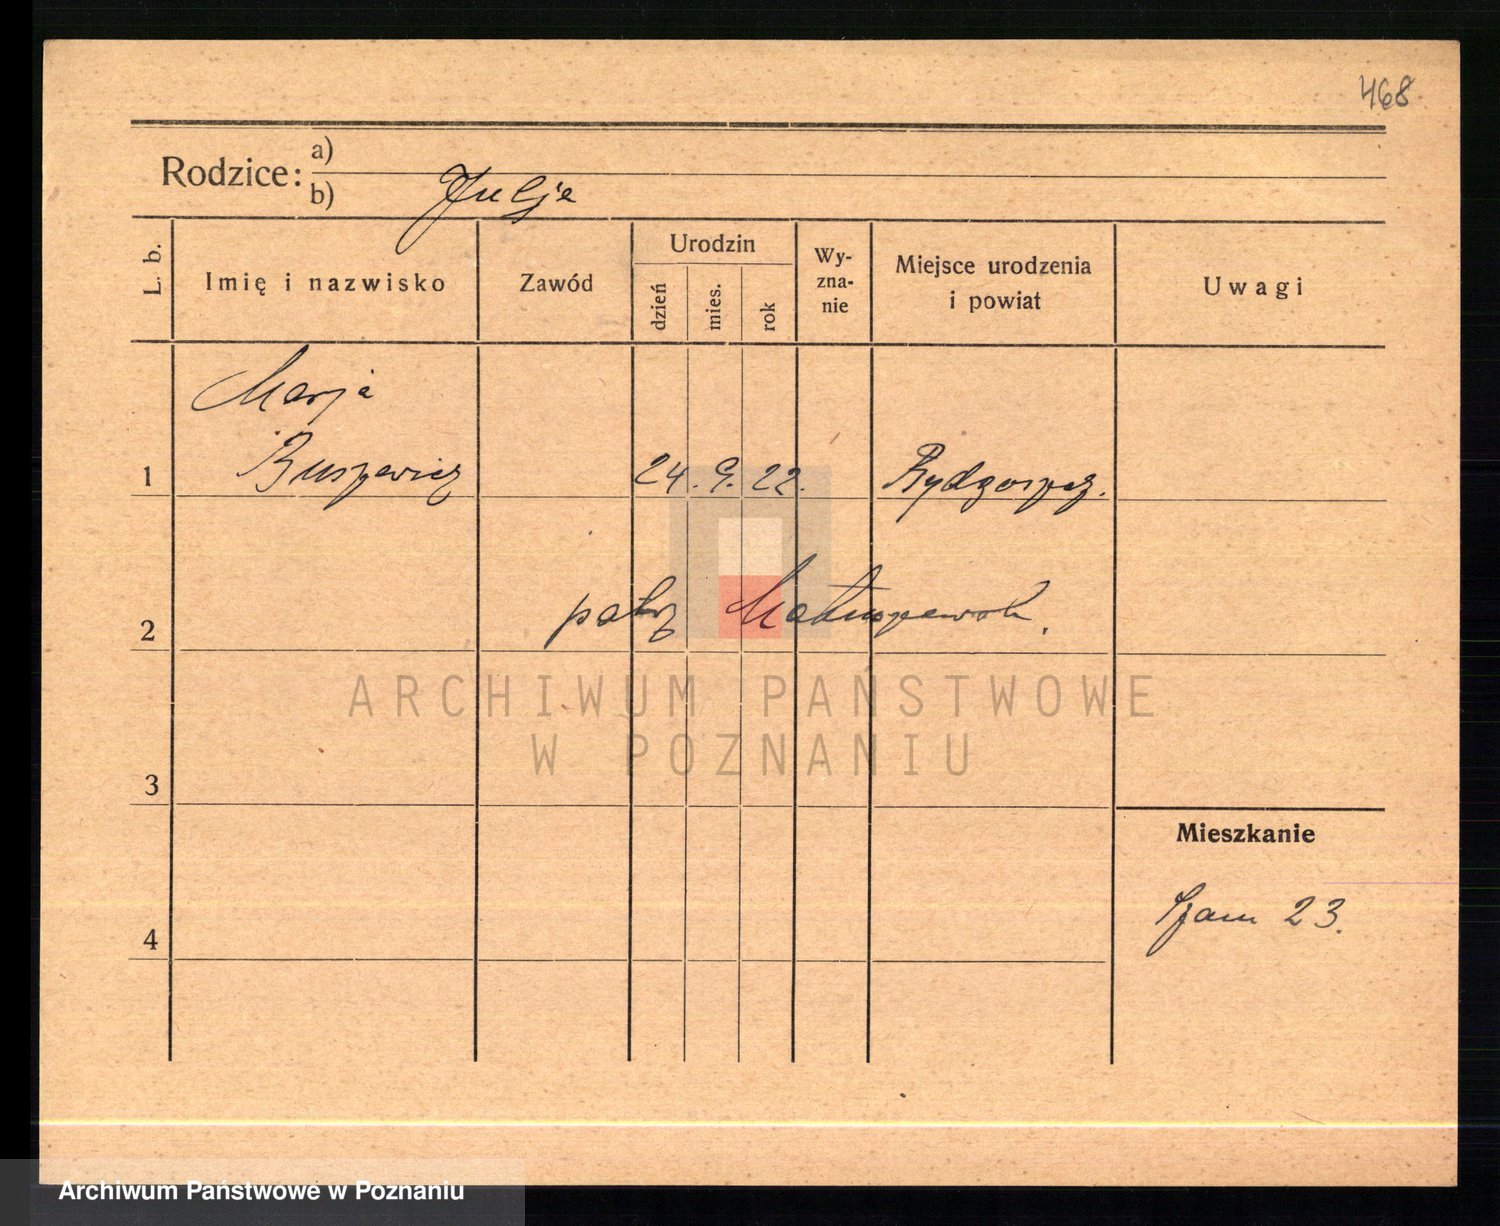 468
Rodzice:
a)
b) Julja
L. b.
Imię i nazwisko
Zawód
Urodzin
dzień
mies.
rok
Wy-
zna-
nie
Miejsce urodzenia
i powiat
Uwagi
Marja
1 Buszewicz 24. 9. 22. Bydgoszcz.
2 patrz
3
Mieszkanie
23.
4
ARCHIWUM PAŃSTWOWE
W POZNANIU
Archiwum Państwowe w Poznaniu